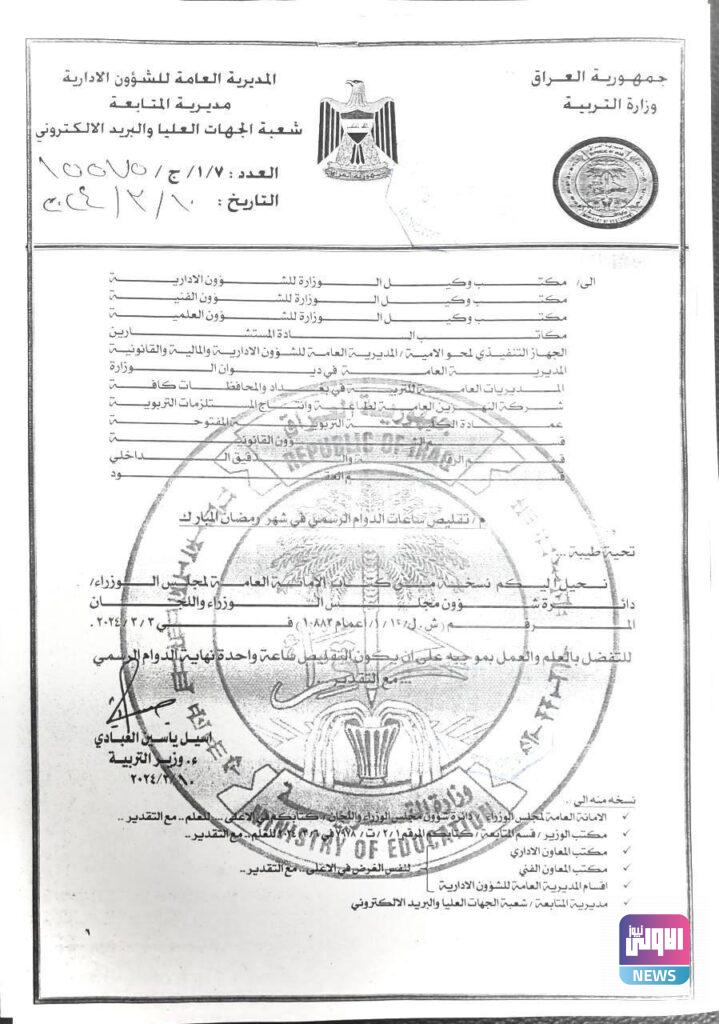 جمهورية العراق
وزارة التربية
المديرية العامة للشؤون الادارية
مديرية المتابعة
شعبة الجهات العليا والبريد الالكتروني
العدد : ١/٧/ ج /
التاريخ : ١٠/٣/٢٠٢٤
جمهورية العراق
الى/ مكتب وكيل الوزارة للشؤون الادارية
مكتب وكيل الوزارة للشؤون الفنية
مكتب وكيل الوزارة للشؤون العلمية
مكاتب السادة المستشارين
الجهاز التنفيذي لمحو الامية / المديرية العامة للشؤون الادارية والمالية والقانونية
المديرية العامة في ديوان الوزارة
المديريات العامة للتربية في بغداد والمحافظات كافة
شركة النهرين العامة لطباعة وانتاج المستلزمات التربوية
عمادة الكلية التربوية المفتوحة
قسم الشؤون القانونية
قسم الرقابة والتدقيق الداخلي
قسم العقود
م / تقليص ساعات الدوام الرسمي في شهر رمضان المبارك
تحية طيبة ..
نحيل اليكم نسخة من كتاب الامانة العامة لمجلس الوزراء/
دائرة شؤون مجلس الوزراء واللجان
المرقم (ش.ل/١/١٤/ اعمام /١٠٨٨٣) في ٢٠٢٤/٣/٣ .
للتفضل بالعلم والعمل بموجبه على ان يكون التقليص ساعة واحدة نهاية الدوام الرسمي
... مع التقدير ...
اسيل ياسين العبادي
ء. وزير التربية
٢٠٢٤/٣/١٠
جمهورية العراق
REPUBLIC OF IRAQ
وزارة التربية
MINISTRY OF EDUCATION
نسخه منه الى ..
✓ الامانة العامة لمجلس الوزراء / دائرة شؤون مجلس الوزراء واللجان / كتابكم في الاعلى ... للعلم .. مع التقدير ..
✓ مكتب الوزير / قسم المتابعة / كتابكم المرقم ١/ ٢/ ت/ ٧٩٧٨ في ٢٠٢٤/٣/٦ للعلم .. مع التقدير ..
✓ مكتب المعاون الاداري
✓ مكتب المعاون الفني
لنفس الغرض في الاعلى .. مع التقدير ..
✓ اقسام المديرية العامة للشؤون الادارية
✓ مديرية المتابعة / شعبة الجهات العليا والبريد الالكتروني
٦
الاولى نيوز
NEWS